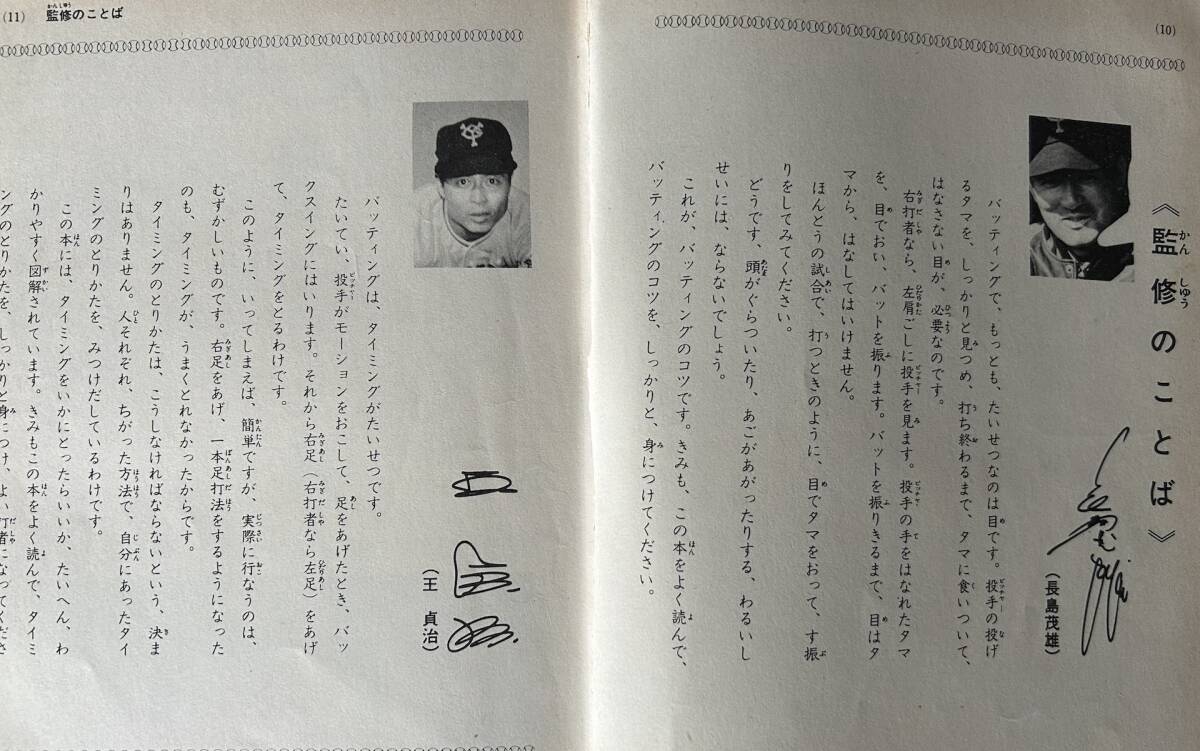 (10)
《監修のことば》
長島茂雄
(長島茂雄)
バッティングで、もっとも、たいせつなのは目です。投手の投げ
るタマを、しっかりと見つめ、打ち終わるまで、タマに食いついて、
はなさない目が、必要なのです。
右打者なら、左肩ごしに投手を見ます。投手の手をはなれたタマ
を、目でおい、バットを振ります。バットを振りきるまで、目はタ
マから、はなしてはいけません。
ほんとうの試合で、打つときのように、目でタマをおって、す振
りをしてみてください。
どうです、頭がぐらついたり、あごがあがったりする、わるいし
せいには、ならないでしょう。
これが、バッティングのコツです。きみも、この本をよく読んで、
バッティングのコツを、しっかりと、身につけてください。
(11) 監修のことば
王貞治
(王 貞治)
バッティングは、タイミングがたいせつです。
たいてい、投手がモーションをおこして、足をあげたとき、バッ
クスイングにはいります。それから右足(右打者なら左足)をあげ
て、タイミングをとるわけです。
このように、いってしまえば、簡単ですが、実際に行なうのは、
むずかしいものです。右足をあげ、一本足打法をするようになった
のも、タイミングが、うまくとれなかったからです。
タイミングのとりかたは、こうしなければならないという、決ま
りはありません。人それぞれ、ちがった方法で、自分にあったタイ
ミングのとりかたを、みつけだしているわけです。
この本には、タイミングをいかにとったらいいか、たいへん、わ
かりやすく図解されています。きみもこの本をよく読んで、タイミ
ングのとりかたを、しっかりと身につけ、よい打者になってくださ